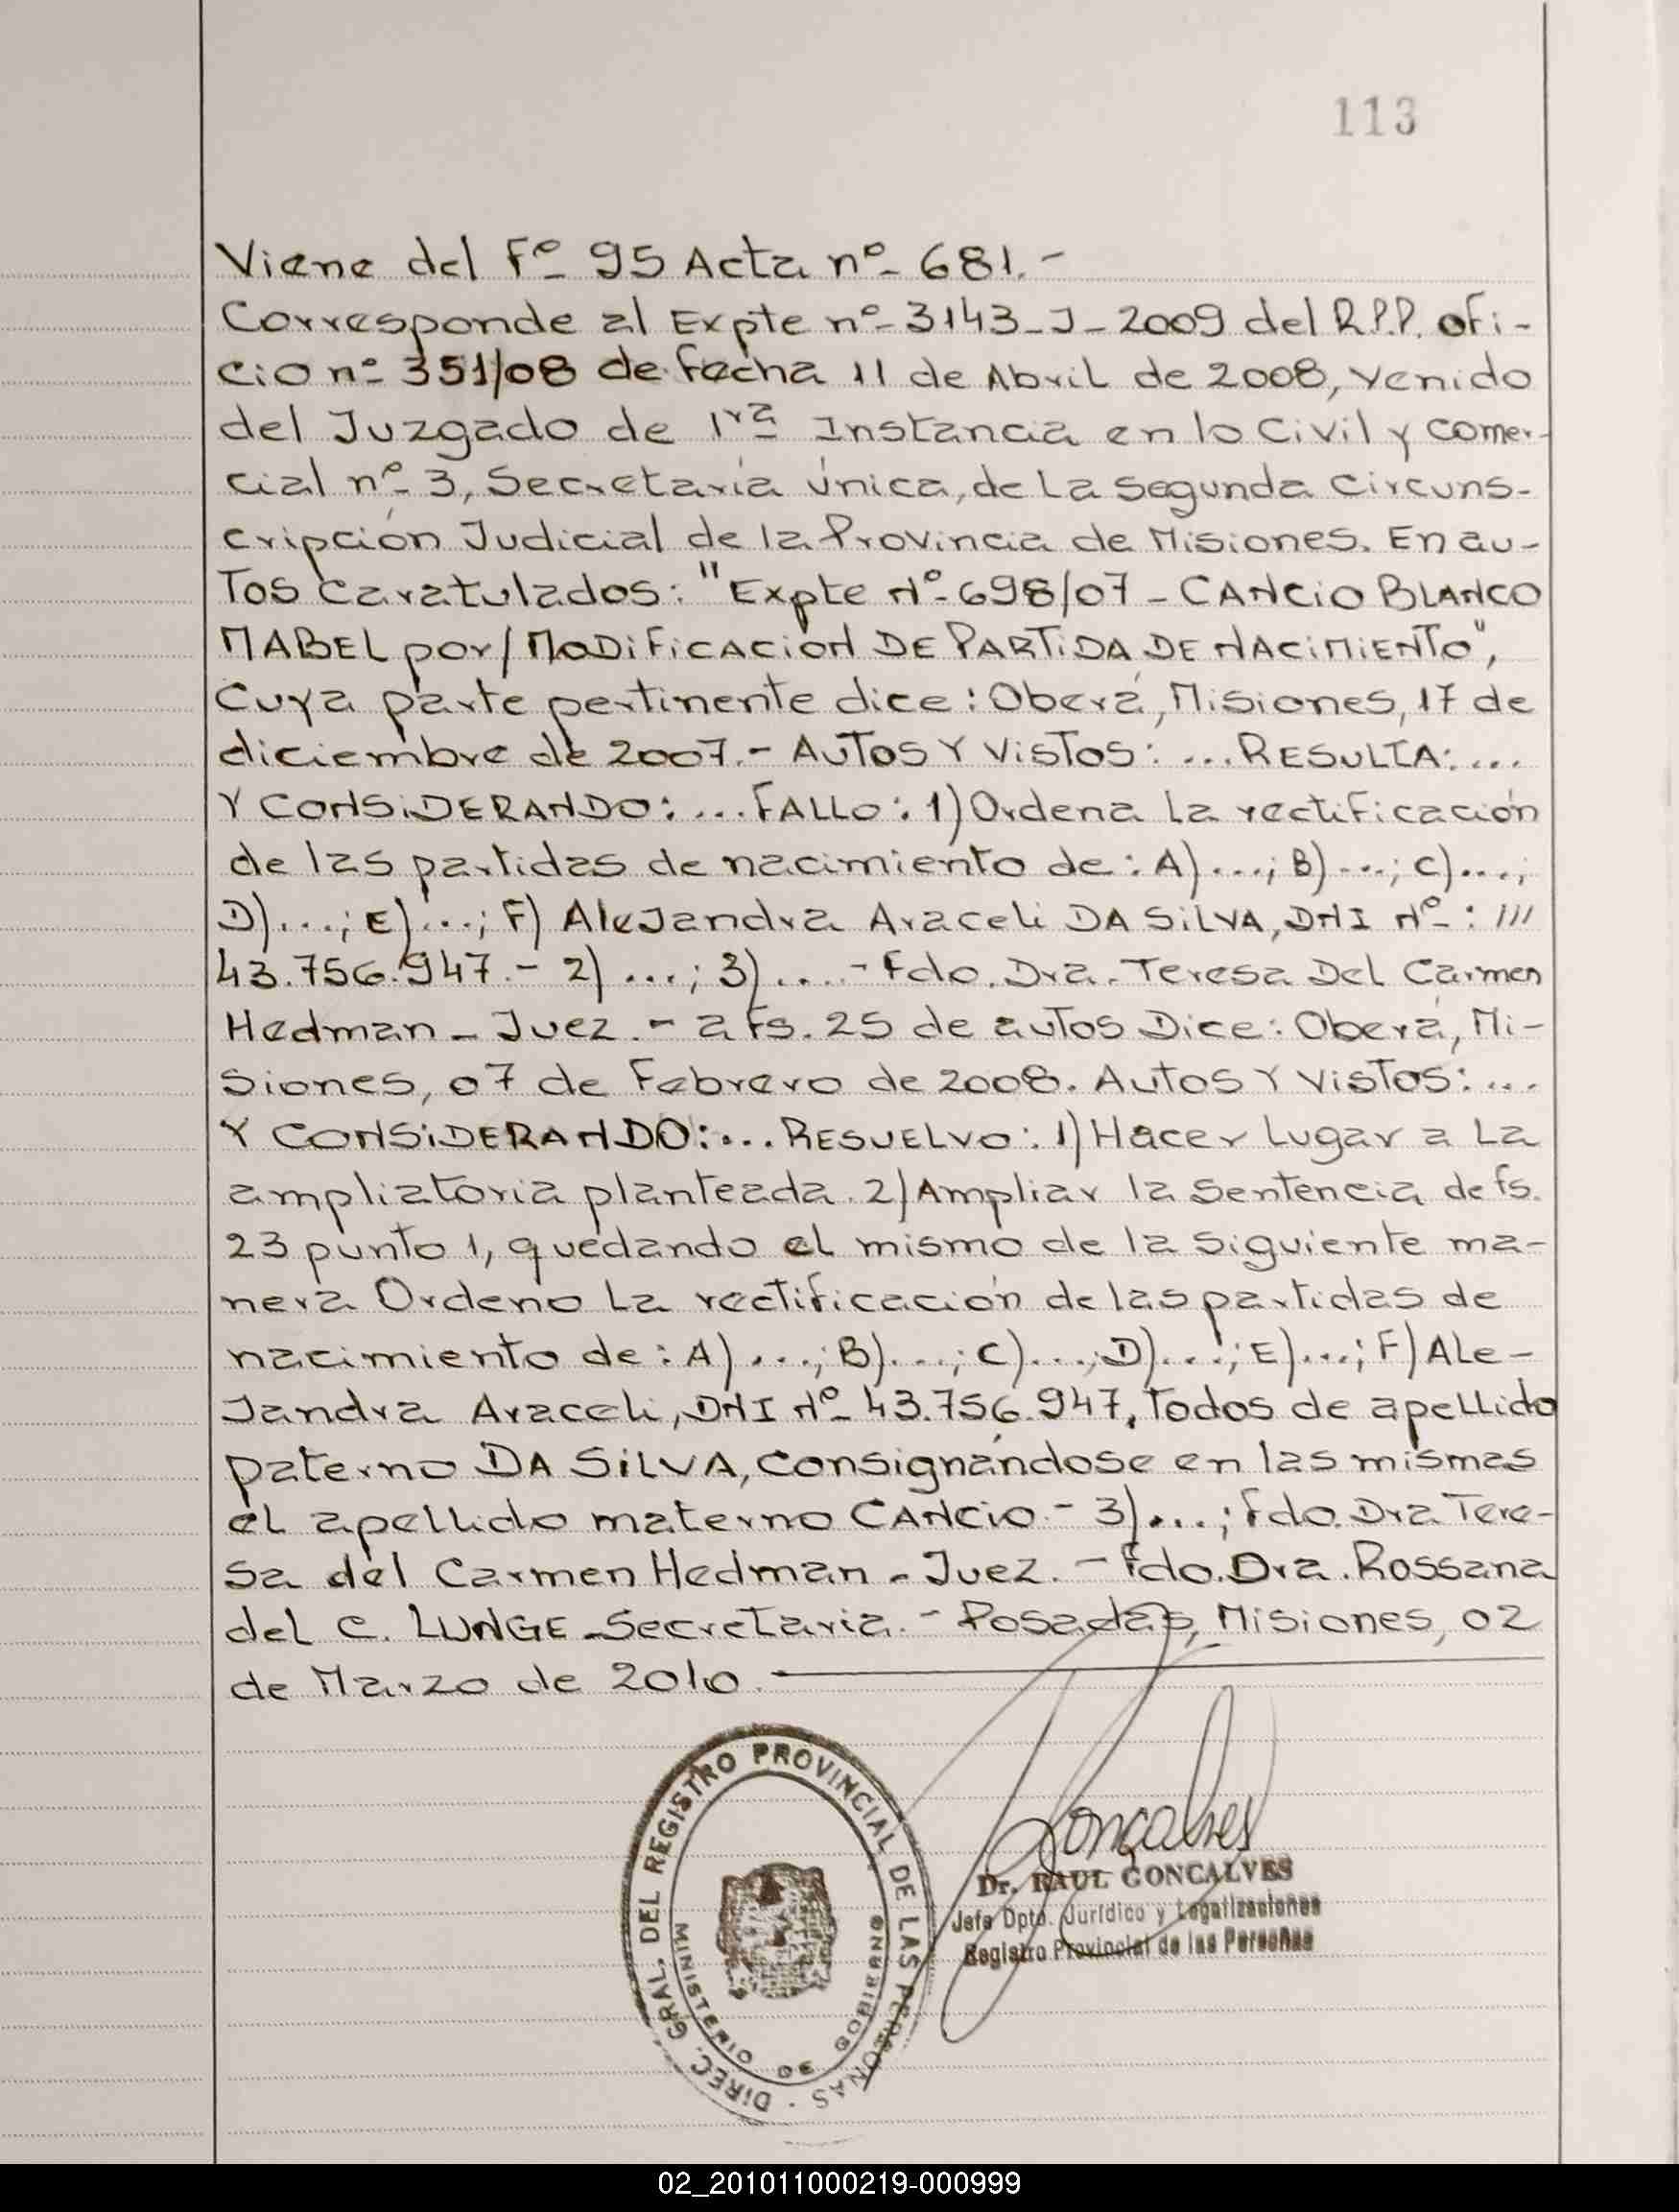 113
Viene del Fº 95 Acta nº 681.-
Corresponde al Expte nº 3143-J-2009 del R.P.P. ofi-
cio nº 351/08 de fecha 11 de Abril de 2008, venido
del Juzgado de 1ra Instancia en lo Civil y comer-
cial nº 3, Secretaría única, de La segunda circuns-
cripción Judicial de la Provincia de Misiones. En au-
Tos caratulados: "Expte Nº 698/07 - CANCiO BLANCO
MABEL por/MODiFiCACiON DE PARTiDA DE NACiMiENTO",
Cuya parte pertinente dice: Oberá, Misiones, 17 de
diciembre de 2007.- AUTOS Y VisTOS: ... RESULTA: ...
Y CONSiDERANDO: ... FALLO: 1) Ordena La rectificación
de las partidas de nacimiento de: A) ...; B) ...; C) ...;
D) ...; E) ...; F) AleJandra Araceli DA SiLVA, DNI Nº: ///
43.756.947.- 2) ...; 3) .... - Fdo. Dra. Teresa Del Carmen
Hedman - Juez. - a fs. 25 de autos Dice: Oberá, Mi-
siones, 07 de Febrero de 2008. Autos Y VisTOS: ...
Y CONSiDERANDO: ... RESUELVO: 1) Hacer Lugar a La
ampliatoria planteada. 2) Ampliar la Sentencia de fs.
23 punto 1, quedando el mismo de la siguiente ma-
nera Ordeno La rectificación de las partidas de
nacimiento de: A) ...; B) ...; C) ...; D) ...; E) ...; F) ALe-
Jandra Araceli, DNI Nº 43.756.947, Todos de apellido
paterno DA SiLVA, consignándose en las mismas
el apellido materno CANCiO - 3) ...; fdo. Dra Tere-
sa del Carmen Hedman - Juez. - Fdo. Dra. Rossana
del C. LUNGE - Secretaria. - Posadas, Misiones, 02
de Marzo de 2010.
DIREC. GRAL. DEL REGISTRO PROVINCIAL DE LAS PERSONAS
MINISTERIO DE GOBIERNO
Goncalves
Dr. RAUL GONCALVES
Jefe Dpto. Jurídico y Legalizaciones
Registro Provincial de las Personas
02_201011000219-000999